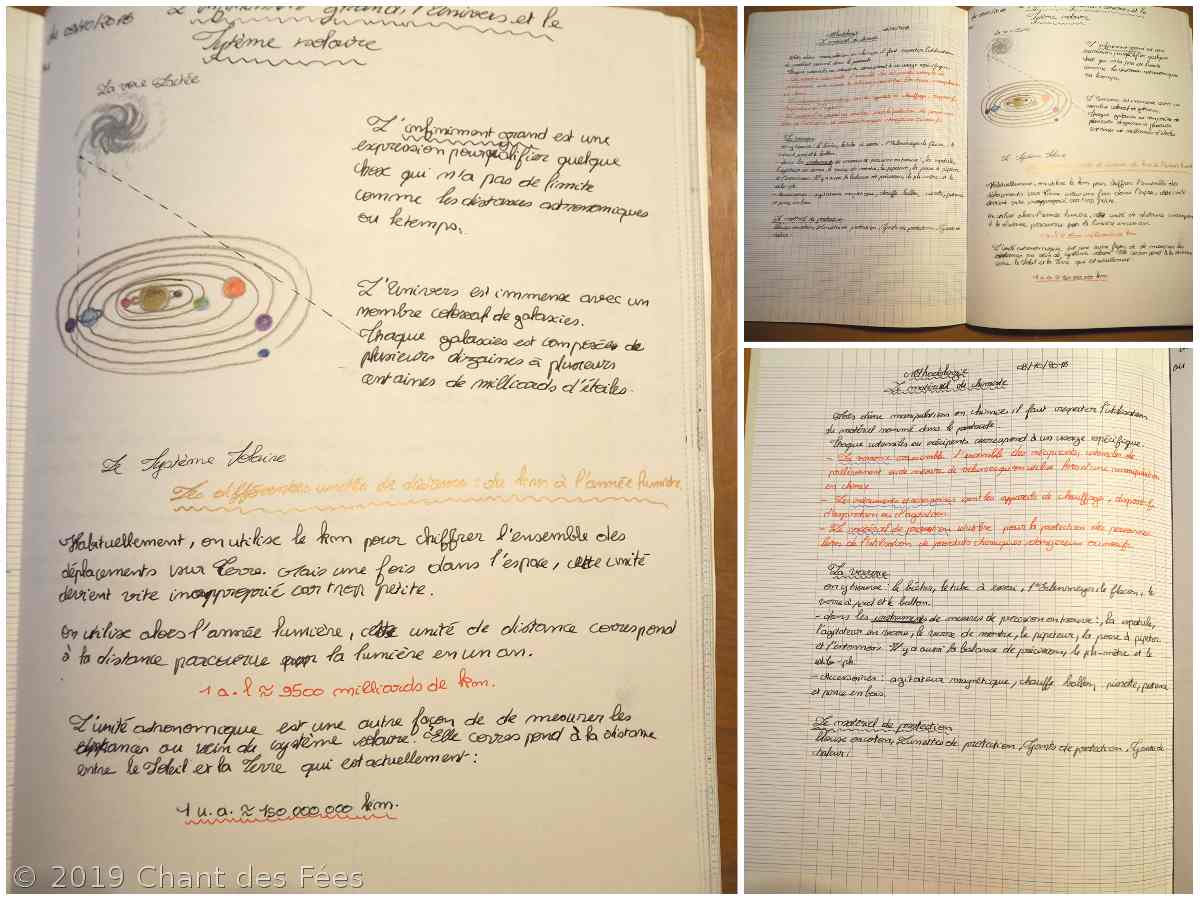 du 09/10/2018
L'infiniment grand, l'Univers et le
Système solaire
La voie Lactée
L'infiniment grand est une
expression pour qualifier quelque
chose qui n'a pas de limite
comme les distances astronomiques
ou le temps.
L'Univers est immense avec un
nombre colossal de galaxies.
Chaque galaxies est composée de
plusieurs dizaines à plusieurs
centaines de milliards d'étoiles.
Le Système Solaire
Les différentes unités de distance : du km à l'année lumière
Habituellement, on utilise le km pour chiffrer l'ensemble des
déplacements sur Terre. Mais une fois dans l'espace, cette unité
devient vite inapproprié car trop petite.
On utilise alors l'année lumière, cette unité de distance correspond
à la distance parcourue par la lumière en un an.
1 a.l ≈ 9500 milliards de km.
L'unité astronomique est une autre façon de de mesurer les
distances au sein du système solaire. Elle correspond à la distance
entre le Soleil et la Terre qui est actuellement :
1 u.a. ≈ 150 000 000 km.
Méthodologie
Le matériel de chimie
Lors d'une manipulation en chimie il faut respecter l'utilisation
du matériel nommé dans le protocole.
Chaque ustensiles ou récipients correspond à un usage spécifique.
- La verrerie ensemble l'ensemble des récipients, ustensiles de
prélèvement ou de mesure de
en chimie
- Les sont les appareils de chauffage, dispositifs
d'aspiration ou d'agitation.
- Le matériel de protection pour la protection des personnes
lors de l'utilisation de produits chimiques dangereux
La verrerie
on y trouve : le bécher, le tube à essai, l'erlenmeyer, le flacon, le
verre à pied et le ballon.
- dans les instruments de mesures de précision on trouve : la spatule,
l'agitateur en verre, le verre de montre, le pipeteur, la poire à pipeter
et l'entonnoir. Il y a aussi la balance de précision, le ph-mètre et le
stylo-ph.
- Accessoires : agitateur magnétique, chauffe ballon, pissette, potence
et pince en bois.
Le matériel de protection
Blouse en coton, Lunettes de protection, Gants de protection, Gants de
chaleur.
© 2019 Chant des Fées